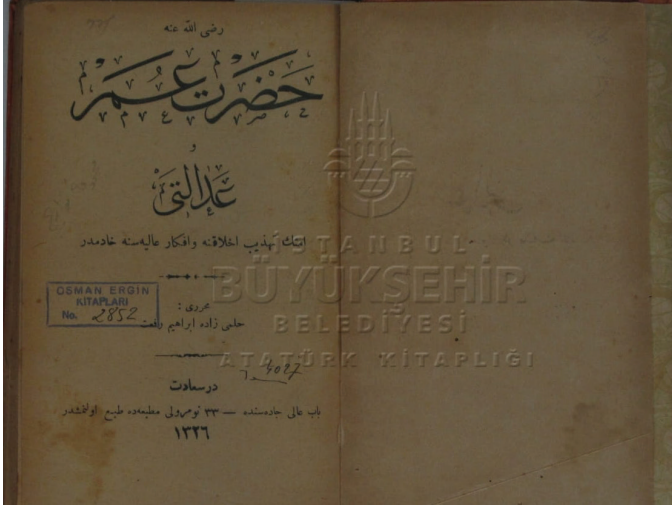 رضی الله عنه
حضرت عمر
و
عدالتی
امتك تهذیب اخلاقنه و افكار عالیه‌سنه خادمدر
OSMAN ERGİN
KİTAPLARI
No. 2852
محرری :
حلمی زاده ابراهیم رفعت
4027
درسعادت
باب عالی جاده‌سنده — ٣٣ نومرولی مطبعه‌ده طبع اولنمشدر
١٣٢٦
İSTANBUL
BÜYÜKŞEHİR
BELEDİYESİ
ATATÜRK KİTAPLIĞI